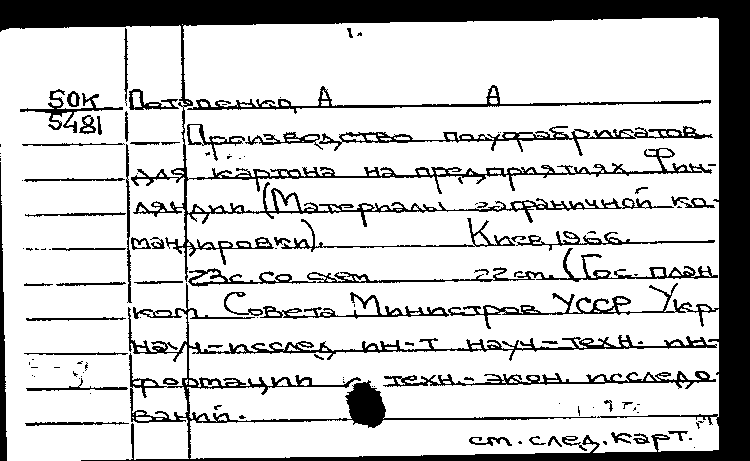 1.
50К Потапенко, А А
5481
Производство полуфабрикатов
для картона на предприятиях Фин-
ляндии (Материалы заграничной ко-
мандировки). Киев, 1966.
23с. со схем 22 см. (Гос. план
ком. Совета Министров УССР Укр
науч.-исслед ин-т науч-техн. ин-
формации и техн.-экон. исследо
ваний.
ст. след. карт.